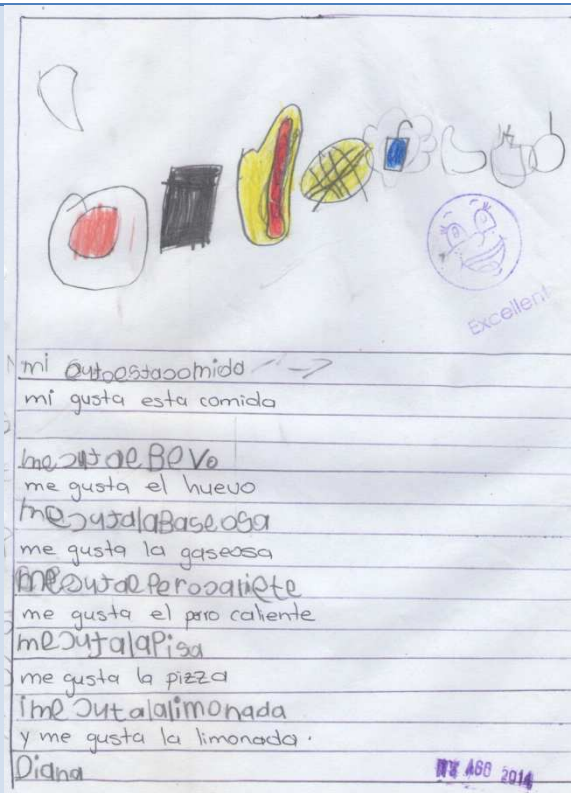 Excellent
mi gutoestacomida
mi gusta esta comida
me gutaeBevo
me gusta el huevo
me gutalaBaseosa
me gusta la gaseosa
me gutaeperocaliete
me gusta el perro caliente
me gutalaPisa
me gusta la pizza
i me gutalalimonada
y me gusta la limonada.
Diana
AGO 2014